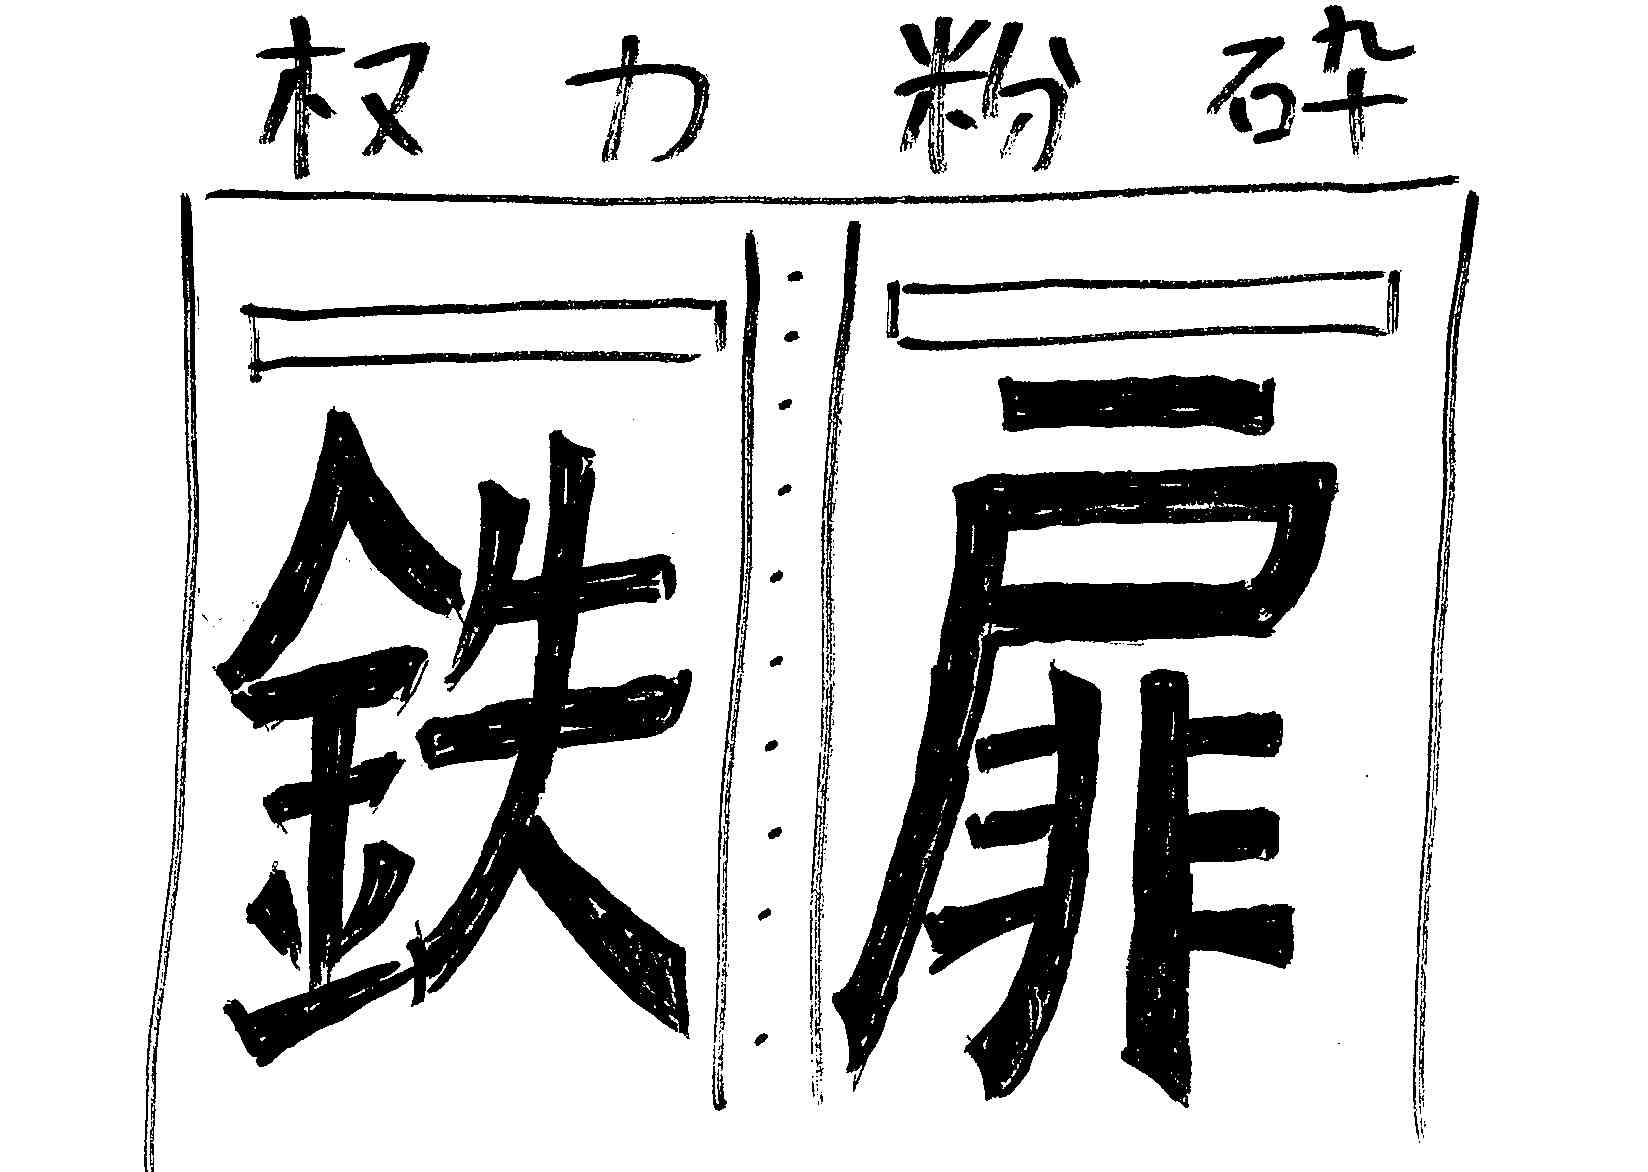 权力粉砕
鉄扉